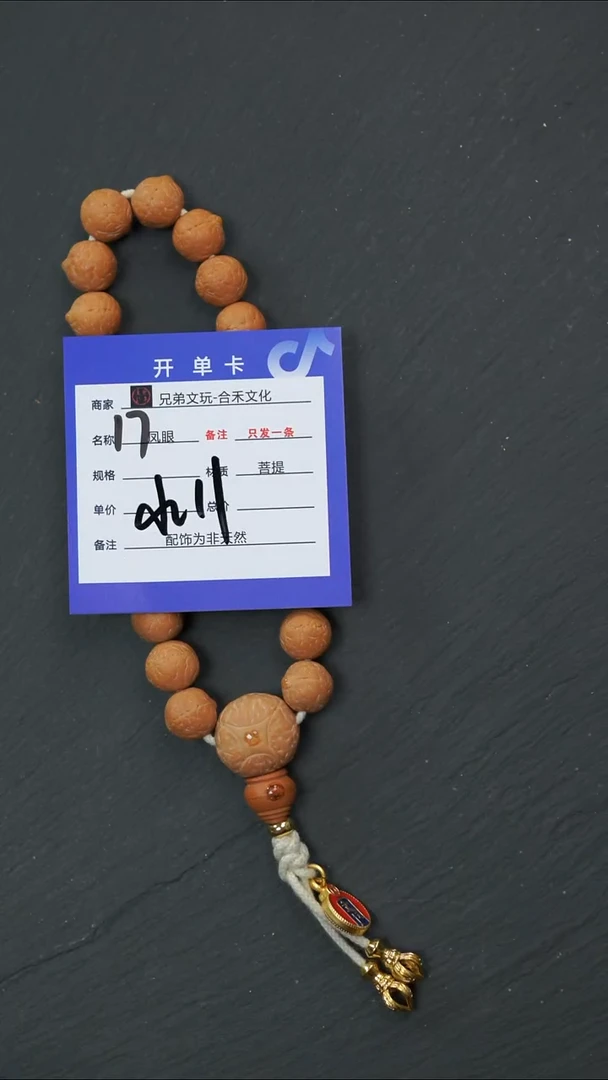 开单卡
商家 兄弟文玩-合禾文化
名称 17 凤眼 备注 只发一条
规格 材质 菩提
单价 总价
备注 配饰为非天然